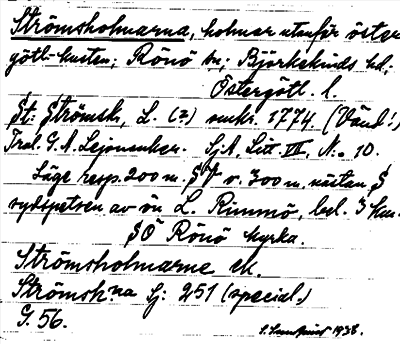 Strömsholmarna, holmar utanför öster
götl-kusten; Rönö sn; Björkekinds hd;
Östergötl. l.
St: Strömsh, L. (2) omkr. 1774. (Vänd!)
Tral. G. A. Lejonanker. SjA, Litt. III, N:o 10.
Läge resp. 200 m. SV o. 300 m. nästan S
sydspetsen av ön L. Rimmö, bel. 3 km.
SÖ Rönö kyrka.
Strömsholmarne ek.
Strömsh:na Sj: 251 (special.)
G. 56.
1938.